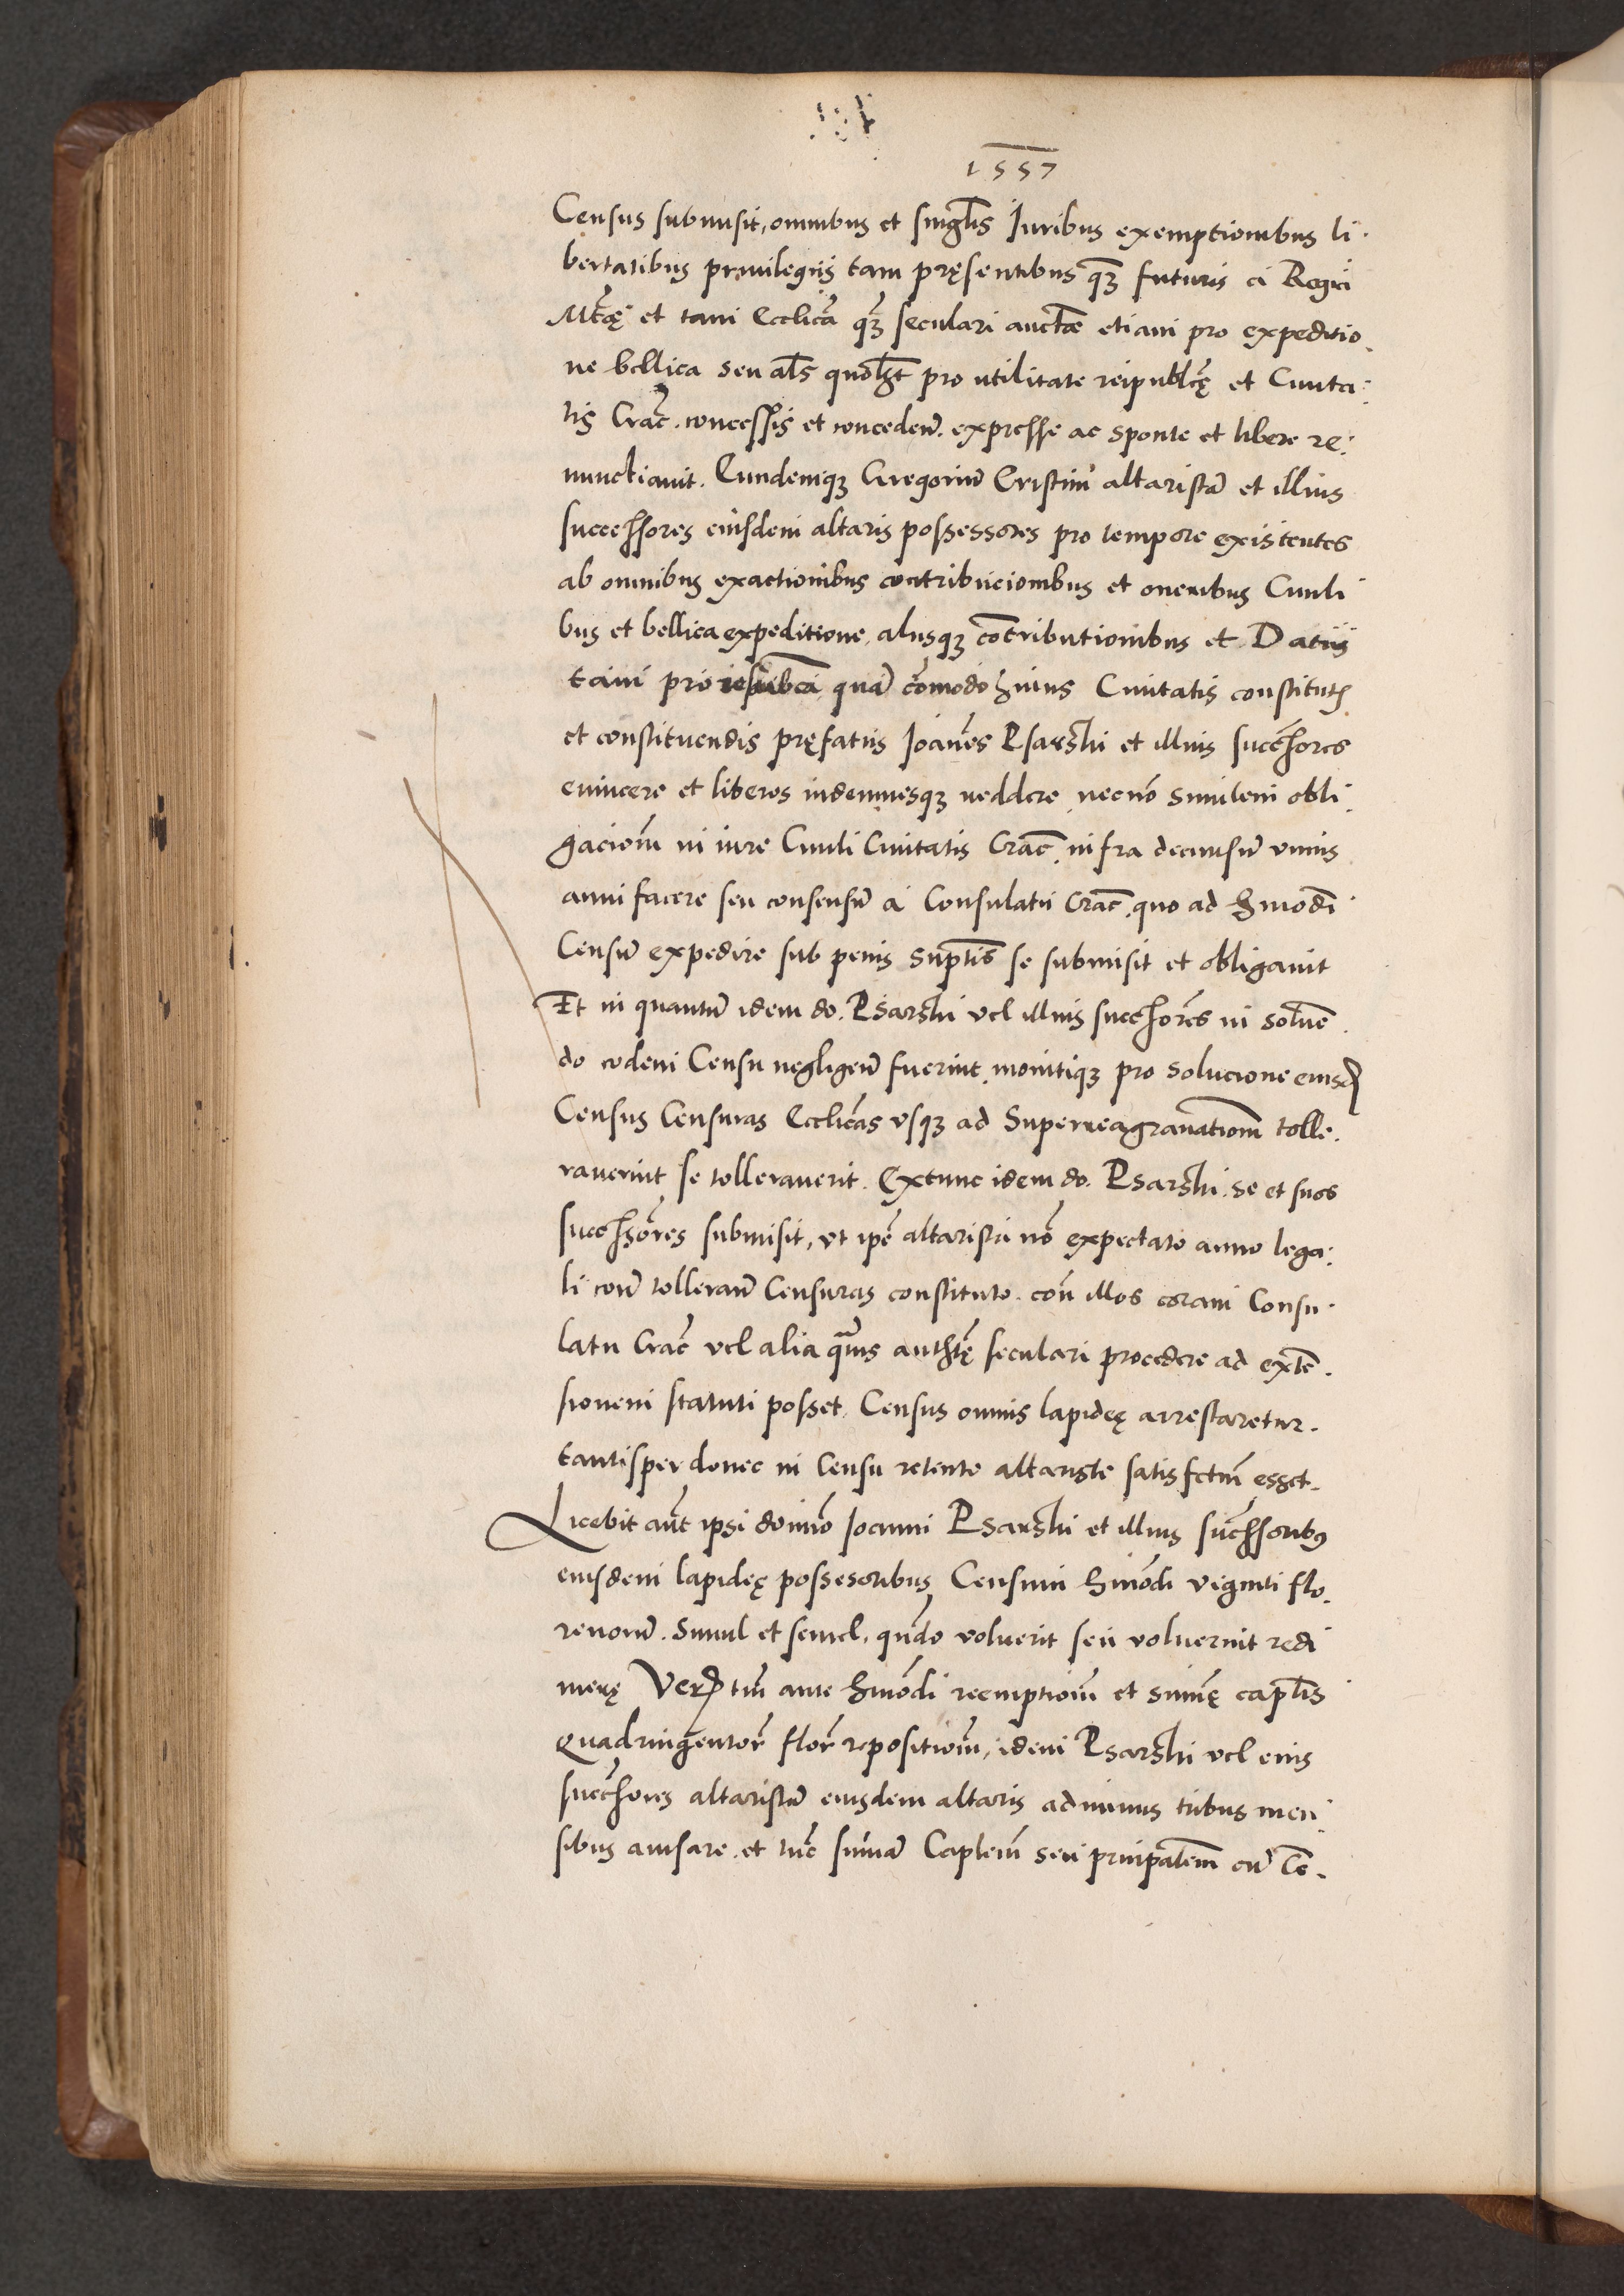 1557
Census submisit, omnibus et singlis Iuribus exemptionibus li
bertatibus privilegiis tam pręsentibus q̃ȝ futuris a Regia
Mtẽ et tam Ecclica q̃ȝ seculari auctãe etiam pro expeditio
ne bellica seu als quolȝt pro utilitate reipublcę et Civita
tis Crac̃. concessis et concedeñ. expresse ac sponte et libere re
nunctiavit. Eundemqȝ Gregoriũ Cristini altaristã et illius
successores eiusdem altaris possessores pro tempore existentes
ab omnibus exactionibus contribuciombus et oneribus Civili
bus et bellica expeditione, aliisqȝ cõtributionibus et Datiis
tam pro quã cõmodo huius Civitatis constitut
et constituendis pręfatus Joañes Psarski et illius succẽssores
evincere et liberos indemnesqȝ reddere necnõ similem obli
gaciom̃ in iure Civili Civitatis Crac̃. infra decursũ unius
anni facere seu consensũ a Consulatu Crac̃. quo ad hmodi
Censũ expedire sub penis suptis se submisit et obligavit
Et in quantũ idem do. Psarski vel illius succẽssores in solvẽ
do eodem Censu negligeñ fuerint, monitiqȝ pro solucione eiusd
Census Censuras Ecclicas usqȝ ad Superreagravationm̃ tolle
raverint se tolleraverit. Extunc idem do. Psarski. se et suos
successores submisit, ut ipẽ altarista nõ expectato anno lega
li coñ tollerañ Censuras constituto. coñ illos coram Consu
latu Crac̃ vel alia quavis authtę seculari procedere ad extẽ
sionem statuti posset. Census omnis lapideę arrestaretur.
tantisper donec in Censu retento altaristę satis fctum̃ esset.
Licebit aut̃ ipsi domino Joanni Psarski et illius succẽssoribus
eiusdem lapideę possessoribus Censum hmõdi viginti flo
renorũ. simul et semel, quñdo voluerit seu voluerint redi
merę Verũ tñ ante hmõdi reemptiom̃ et sum̃ę capitlis
Quadringentor̃ flor̃ repositiom̃, idem Psarski vel eius
succẽssores altaristã eiusdem altaris ad minus tribus men
sibus avisare. et tũc sum̃ã Captlem̃ seu prinpalem̃ cũ Cẽ